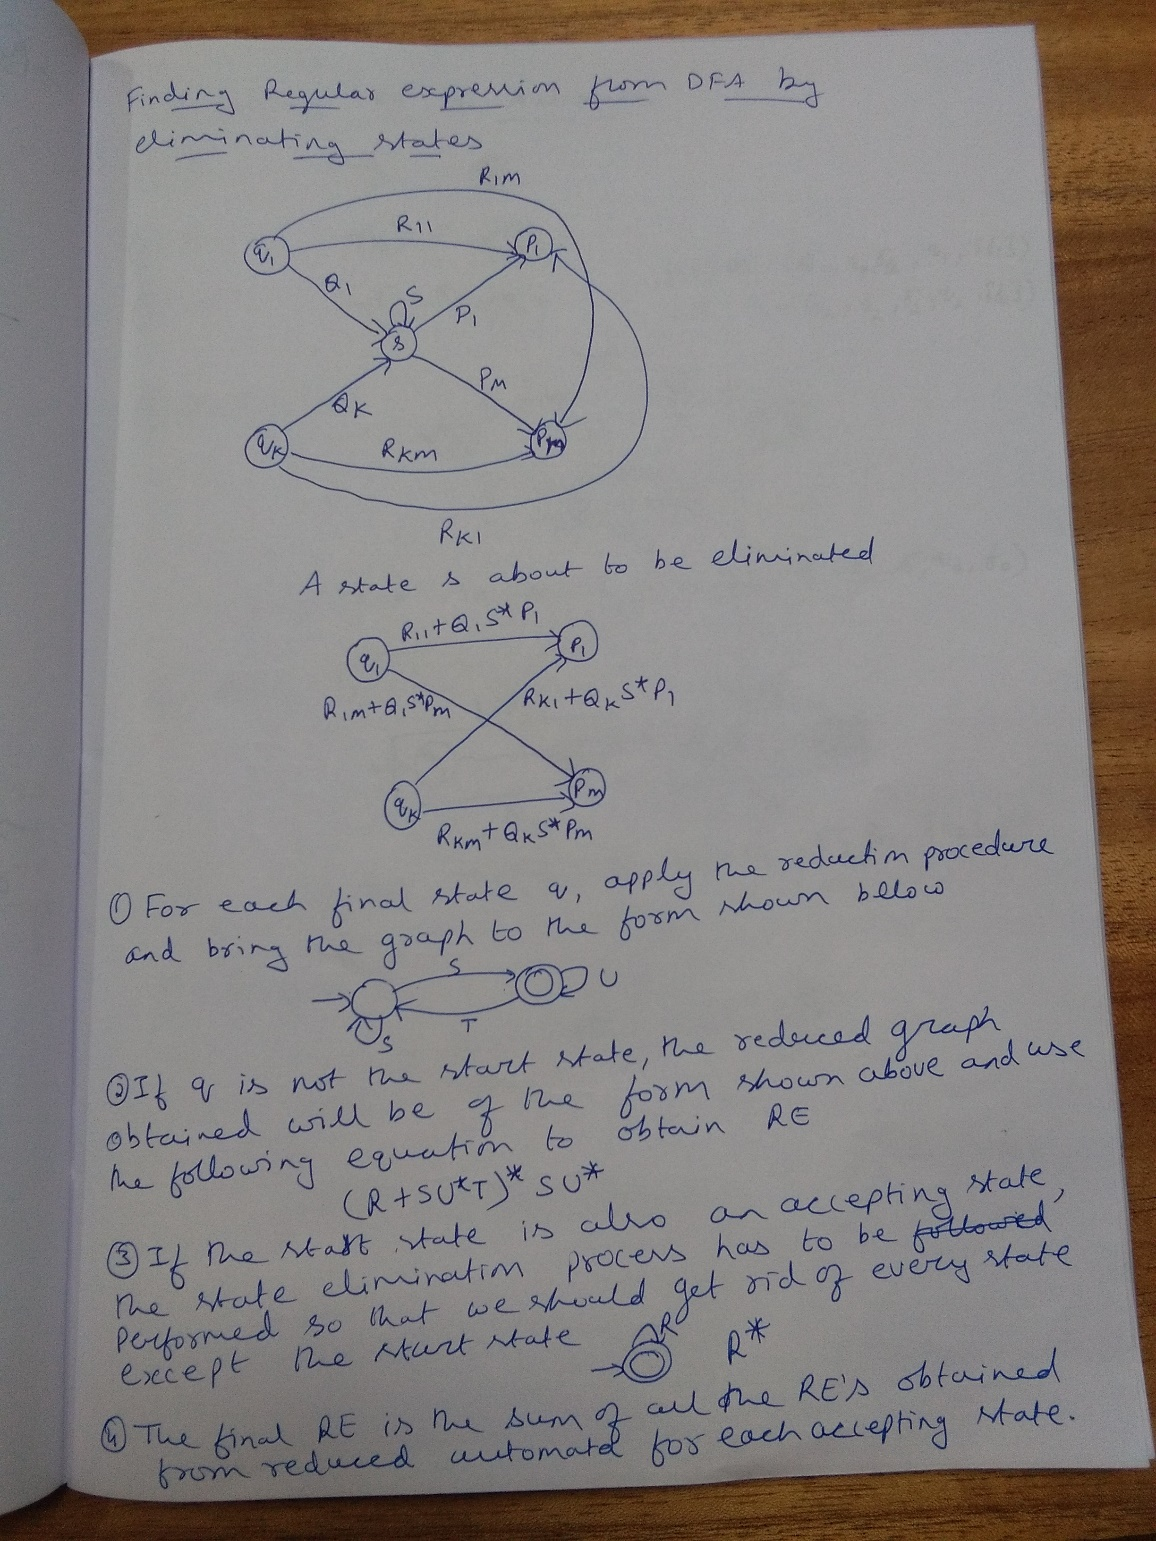 Finding Regular expression from DFA by
eliminating states
R1M
R11
q1
P1
Q1
S
P1
s
PM
QK
qK
RKM
Pm
RK1
A state s is about to be eliminated
R11+Q1S*P1
q1
P1
R1M+Q1S*Pm
RK1+QKS*P1
qK
Pm
RKM+QKS*Pm
① For each final state q, apply the reduction procedure
and bring the graph to the form shown below
S
U
T
S
② If q is not the start state, the reduced graph
obtained will be of the form shown above and use
the following equation to obtain RE
(R+SU*T)* SU*
③ If the start state is also an accepting state,
the state elimination process has to be followed
Performed so that we should get rid of every state
except the start state
R
R*
④ The final RE is the sum of all the RE's obtained
from reduced automata for each accepting state.